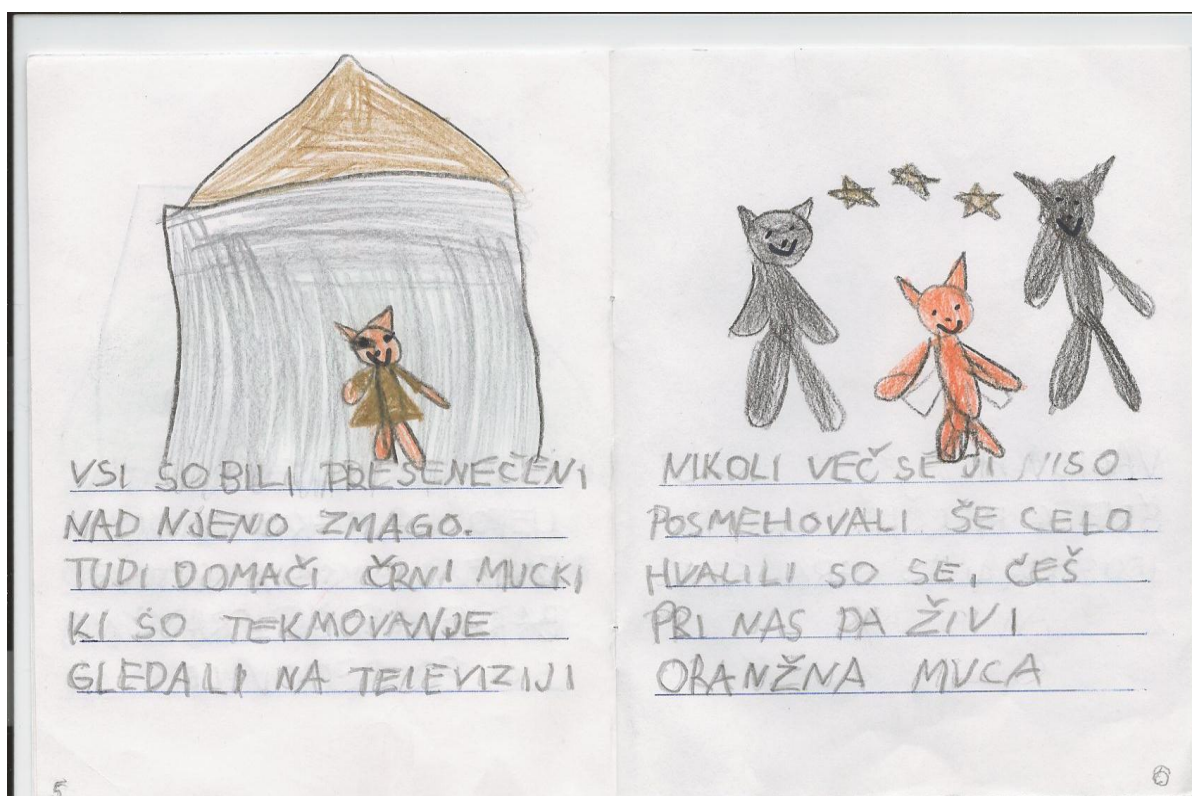 VSI SO BILI PRESENEČENI
NAD NJENO ZMAGO.
TUDI DOMAČI ČRNI MUCKI
KI SO TEKMOVANJE
GLEDALI NA TELEVIZIJI
5
NIKOLI VEČ SE JI NISO
POSMEHOVALI ŠE CELO
HVALILI SO SE, ČEŠ
PRI NAS PA ŽIVI
ORANŽNA MUCA
6